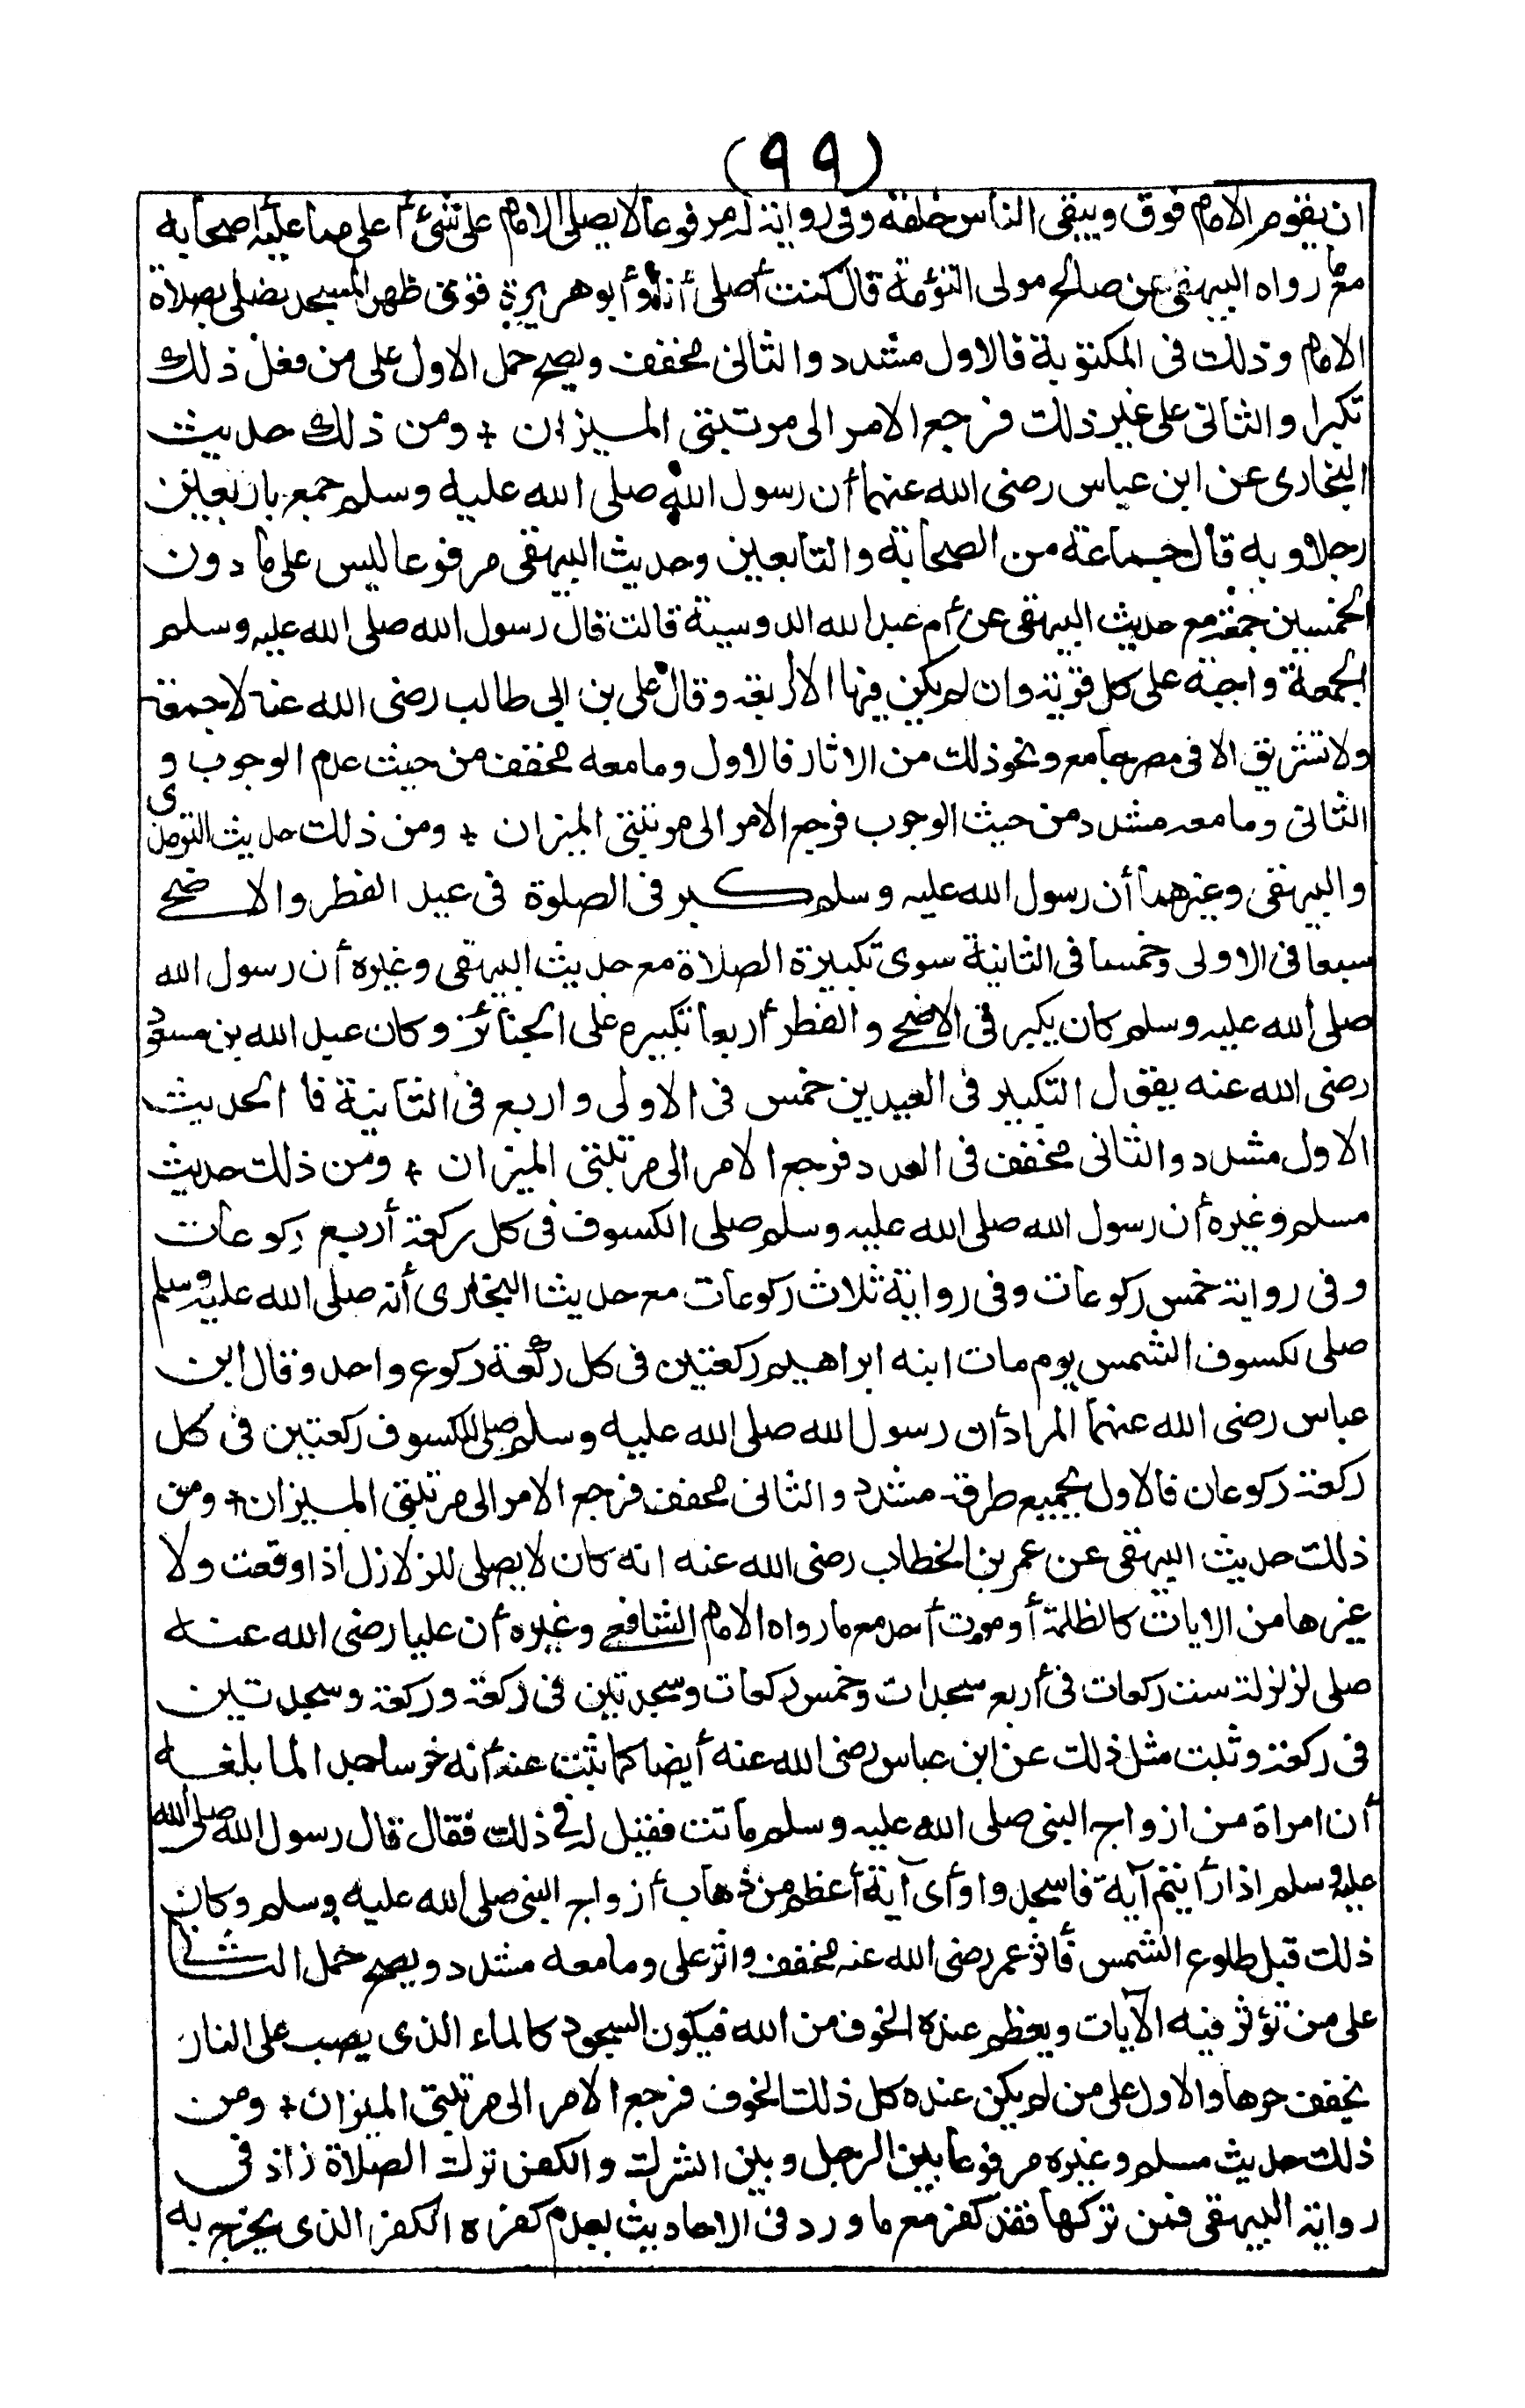 (٩٩)
ان يقوم الامام فوق ويبقى الناس خلفه وفى رواية له مرفوعا لا يصلى الامام على شئ أعلى مما عليه اصحابه
مع ما رواه البيهقى عن صالح مولى التؤمة قال كنت أصلى أنا وأبو هريرة فوق ظهر المسجد نصلى بصلاة
الامام وذلك فى المكتوبة فالاول مشدد والثانى مخفف ويصح حمل الاول على من فعل ذلك
تكبرا والثانى على غير ذلك فرجع الامر الى مرتبتى الميزان + ومن ذلك حديث
البخارى عن ابن عباس رضى الله عنهما أن رسول الله صلى الله عليه وسلم جمع باربعين
رجلا وبه قال جماعة من الصحابة والتابعين وحديث البيهقى مرفوعا ليس على ما دون
الخمسين جمعة مع حديث البيهقى عن أم عبد الله الدوسية قالت قال رسول الله صلى الله عليه وسلم
الجمعة واجبة على كل قرية وان لم يكن فيها الا أربعة وقال على بن ابى طالب رضى الله عنه لا جمعة
ولا تشريق الا فى مصر جامع ونحو ذلك من الاثار فالاول وما معه مخفف من حيث عدم الوجوب و
الثانى وما معه مشدد من حيث الوجوب فرجع الامر الى مرتبتى الميزان + ومن ذلك حديث الترمذى
والبيهقى وغيرهما أن رسول الله عليه وسلم كبر فى الصلوة فى عيد الفطر والاضحى
سبعا فى الاولى وخمسا فى الثانية سوى تكبيرة الصلاة مع حديث البيهقى وغيره أن رسول الله
صلى الله عليه وسلم كان يكبر فى الاضحى والفطر أربعا تكبيره على الجنائز وكان عبد الله بن مسعود
رضى الله عنه يقول التكبير فى العيدين خمس فى الاولى واربع فى الثانية فا الحديث
الاول مشدد والثانى مخفف فى العدد فرجع الامر الى مرتبتى الميزان + ومن ذلك حديث
مسلم وغيره أن رسول الله صلى الله عليه وسلم صلى الكسوف فى كل ركعة أربع ركوعات
وفى رواية خمس ركوعات وفى رواية ثلاث ركوعات مع حديث البخارى أنه صلى الله عليه وسلم
صلى لكسوف الشمس يوم مات ابنه ابراهيم ركعتين فى كل ركعة ركوع واحد وقال ابن
عباس رضى الله عنهما المراد أن رسول الله صلى الله عليه وسلم صلى للكسوف ركعتين فى كل
ركعة ركوعان فالاول بجميع طرقه مشدد والثانى مخفف فرجع الامر الى مرتبتى الميزان + ومن
ذلك حديث البيهقى عن عمر بن الخطاب رضى الله عنه انه كان لا يصلى للزلازل اذا وقعت ولا
غيرها من الايات كالظلمة أو موت أحد مع ما رواه الامام الشافعى وغيره أن عليا رضى الله عنه
صلى لزلزلة ست ركعات فى أربع سجدات وخمس ركعات وسجدتين فى ركعة وركعة وسجدتين
فى ركعة وثبت مثل ذلك عن ابن عباس رضى الله عنه أيضا كما ثبت عنه أنه خر ساجدا لما بلغه
أن امراة من ازواج النبى صلى الله عليه وسلم ماتت فقيل له فى ذلك فقال قال رسول الله صلى الله
عليه وسلم اذا رأيتم آية فاسجدوا وأى آية أعظم من ذهاب أزواج النبى صلى الله عليه وسلم وكان
ذلك قبل طلوع الشمس فأثر عمر رضى الله عنه مخفف واثر على وما معه مشدد ويصح حمل الثانى
على من تؤثر فيه الآيات ويعظم عنده الخوف من الله فيكون السجود كالماء الذى يصب على النار
يخفف حرها والاول على من لم يكن عنده كل ذلك الخوف فرجع الامر الى مرتبتى الميزان + ومن
ذلك حديث مسلم وغيره مرفوعا بين الرجل وبين الشرك والكفر ترك الصلاة زاد فى
رواية البيهقى فمن تركها فقد كفر مع ما ورد فى الاحاديث بعدم كفره الكفر الذى يخرج به